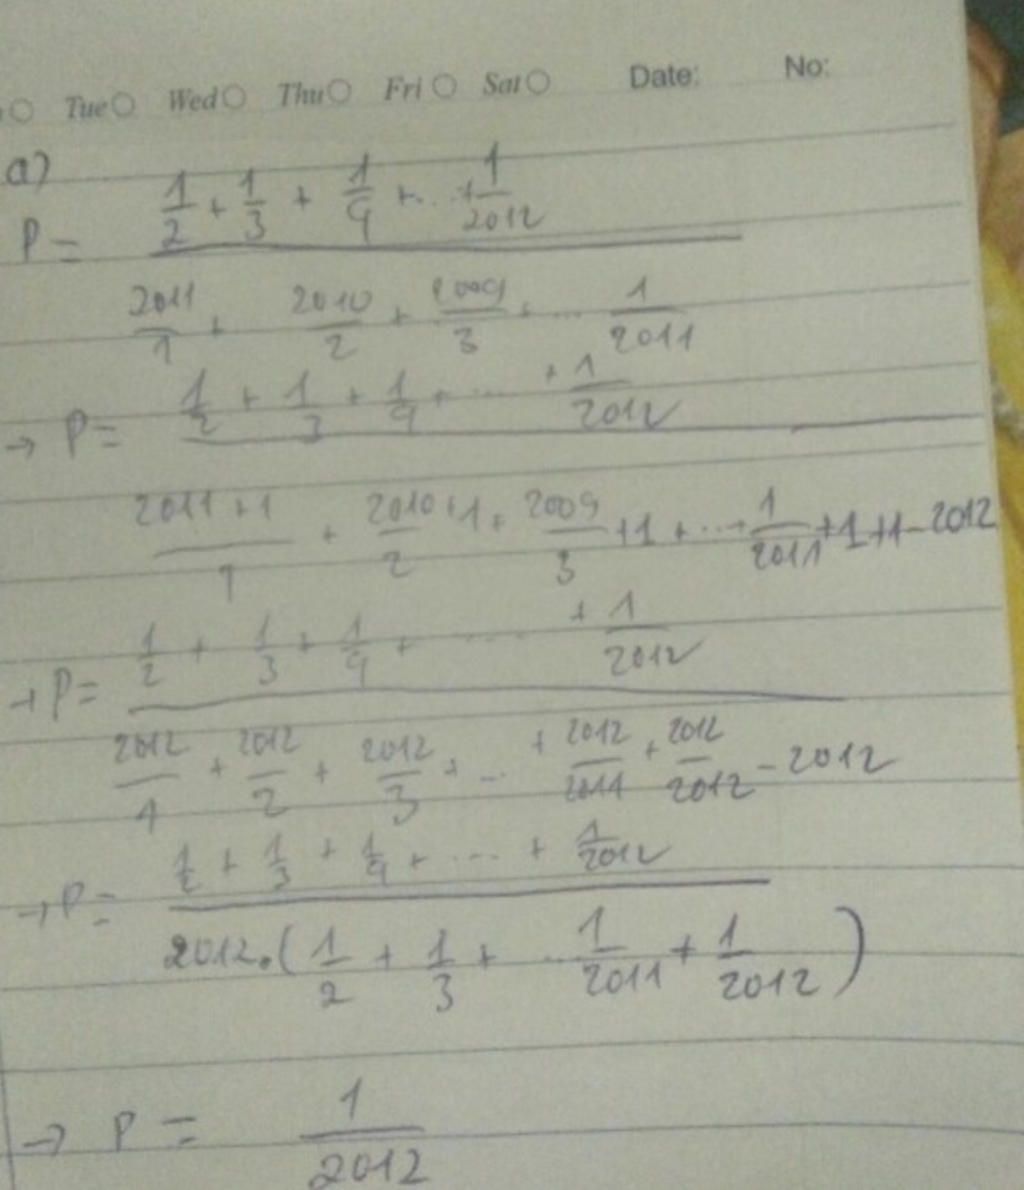 Tue Wed Thu Fri Sat Date: No:
a)
P = (1/2 + 1/3 + 1/4 + ... + 1/2012) / (2011/1 + 2010/2 + 2009/3 + ... 1/2011)
→ P = (1/2 + 1/3 + 1/4 + ... + 1/2012) / ((2011+1)/1 + 2010/2 +1 + 2009/3 +1 + ... + 1/2011 +1+1-2012)
→ P = (1/2 + 1/3 + 1/4 + ... + 1/2012) / (2012/1 + 2012/2 + 2012/3 + ... + 2012/2011 + 2012/2012 - 2012)
→ P = (1/2 + 1/3 + 1/4 + ... + 1/2012) / (2012.(1/2 + 1/3 + ... 1/2011 + 1/2012))
→ P = 1/2012